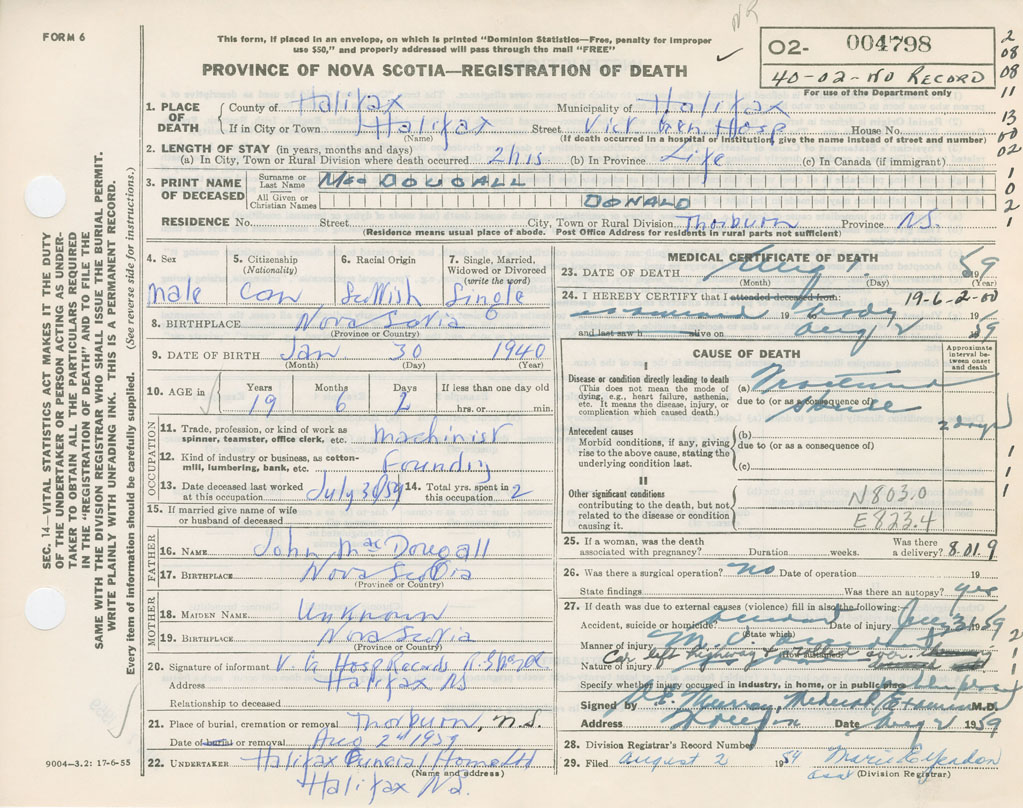 FORM 6
This form, if placed in an envelope, on which is printed "Dominion Statistics—Free, penalty for improper
use $50," and properly addressed will pass through the mail "FREE"
PROVINCE OF NOVA SCOTIA—REGISTRATION OF DEATH
NR
O2- 004798
40-02-NO RECORD
For use of the Department only
2
08
08
11
13
00
02
1
0
2
1
SEC. 14—VITAL STATISTICS ACT MAKES IT THE DUTY
OF THE UNDERTAKER OR PERSON ACTING AS UNDER-
TAKER TO OBTAIN ALL THE PARTICULARS REQUIRED
IN THE "REGISTRATION OF DEATH" AND TO FILE THE
SAME WITH THE DIVISION REGISTRAR WHO SHALL ISSUE THE BURIAL PERMIT.
WRITE PLAINLY WITH UNFADING INK. THIS IS A PERMANENT RECORD.
Every item of information should be carefully supplied. (See reverse side for instructions.)
1. PLACE OF DEATH
County of Halifax Municipality of Halifax
If in City or Town Halifax Street Vict Gen Hosp House No.
(Name) (If death occurred in a hospital or institution, give the name instead of street and number)
2. LENGTH OF STAY (in years, months and days)
(a) In City, Town or Rural Division where death occurred 2 hrs (b) In Province Life (c) In Canada (if immigrant)
3. PRINT NAME OF DECEASED
Surname or Last Name MacDOUGALL
All Given or Christian Names DONALD
RESIDENCE No. Street City, Town or Rural Division Thorburn Province N.S.
(Residence means usual place of abode. Post Office Address for residents in rural parts not sufficient)
4. Sex male
5. Citizenship (Nationality) Can
6. Racial Origin Scottish
7. Single, Married, Widowed or Divorced (write the word) Single
8. BIRTHPLACE Nova Scotia
(Province or Country)
9. DATE OF BIRTH Jan 30 1940
(Month) (Day) (Year)
10. AGE in Years Months Days If less than one day old
19 6 2 hrs. or min.
OCCUPATION
11. Trade, profession, or kind of work as spinner, teamster, office clerk, etc. Machinist
12. Kind of industry or business, as cotton-mill, lumbering, bank, etc. Foundry
13. Date deceased last worked at this occupation July 31/59 14. Total yrs. spent in this occupation 2
15. If married give name of wife
or husband of deceased
FATHER
16. NAME John MacDougall
17. BIRTHPLACE Nova Scotia
(Province or Country)
MOTHER
18. MAIDEN NAME Unknown
19. BIRTHPLACE Nova Scotia
(Province or Country)
20. Signature of informant V G Hosp Records
Address Halifax NS
Relationship to deceased
21. Place of burial, cremation or removal Thorburn, N.S.
Date of burial or removal Aug 2nd 1959
22. UNDERTAKER Halifax Funeral Home
(Name and address)
Halifax N.S.
9004-3.2: 17-6-55
MEDICAL CERTIFICATE OF DEATH
23. DATE OF DEATH Aug 1. 1959
(Month) (Day) (Year)
24. I HEREBY CERTIFY that I attended deceased from: 19-6-2-00
examined 19 body 19
and last saw h alive on Aug 2 1959
CAUSE OF DEATH
Approximate interval between onset and death
I
Disease or condition directly leading to death
(This does not mean the mode of dying, e.g., heart failure, asthenia, etc. It means the disease, injury, or complication which caused death.)
(a)
due to (or as a consequence of)
2 days
Antecedent causes
Morbid conditions, if any, giving rise to the above cause, stating the underlying condition last.
(b)
due to (or as a consequence of)
(c)
II
Other significant conditions contributing to the death, but not related to the disease or condition causing it.
N803.0
E823.4
25. If a woman, was the death Was there
associated with pregnancy? Duration weeks. a delivery? 8-01.9
26. Was there a surgical operation? no Date of operation 19
State findings Was there an autopsy? yes
27. If death was due to external causes (violence) fill in also the following:—
Accident, suicide or homicide? Date of injury July 31 1959
(State which)
Manner of injury
(How sustained)
Car left highway &
Nature of injury
Specify whether injury occurred in industry, in home, or in public place public place
Signed by Murray, Medical Examiner M.D.
Address Date Aug 2 1959
28. Division Registrar's Record Number
29. Filed August 2 1959
(Division Registrar)